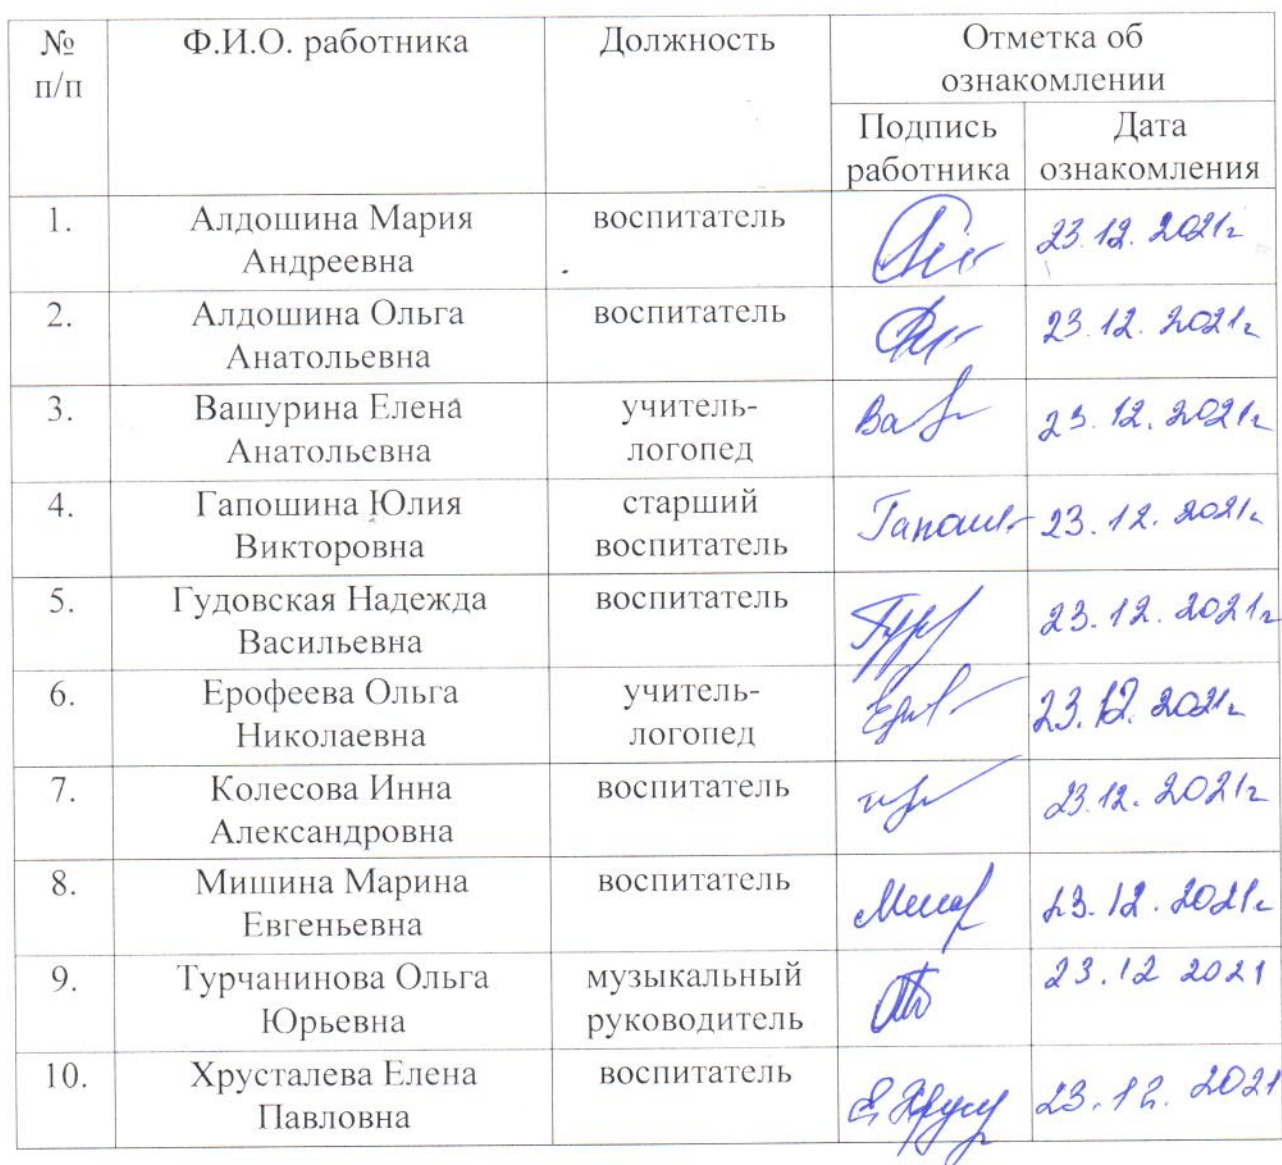 № п/п
Ф.И.О. работника
Должность
Отметка об
ознакомлении
Подпись
работника
Дата
ознакомления
1.
Алдошина Мария
Андреевна
воспитатель
23.12.2021г
2.
Алдошина Ольга
Анатольевна
воспитатель
23.12.2021г
3.
Вашурина Елена
Анатольевна
учитель-
логопед
23.12.2021г
4.
Гапошина Юлия
Викторовна
старший
воспитатель
23.12.2021г
5.
Гудовская Надежда
Васильевна
воспитатель
23.12.2021г
6.
Ерофеева Ольга
Николаевна
учитель-
логопед
23.12.2021г
7.
Колесова Инна
Александровна
воспитатель
23.12.2021г
8.
Мишина Марина
Евгеньевна
воспитатель
23.12.2021г
9.
Турчанинова Ольга
Юрьевна
музыкальный
руководитель
23.12 2021
10.
Хрусталева Елена
Павловна
воспитатель
23.12.2021